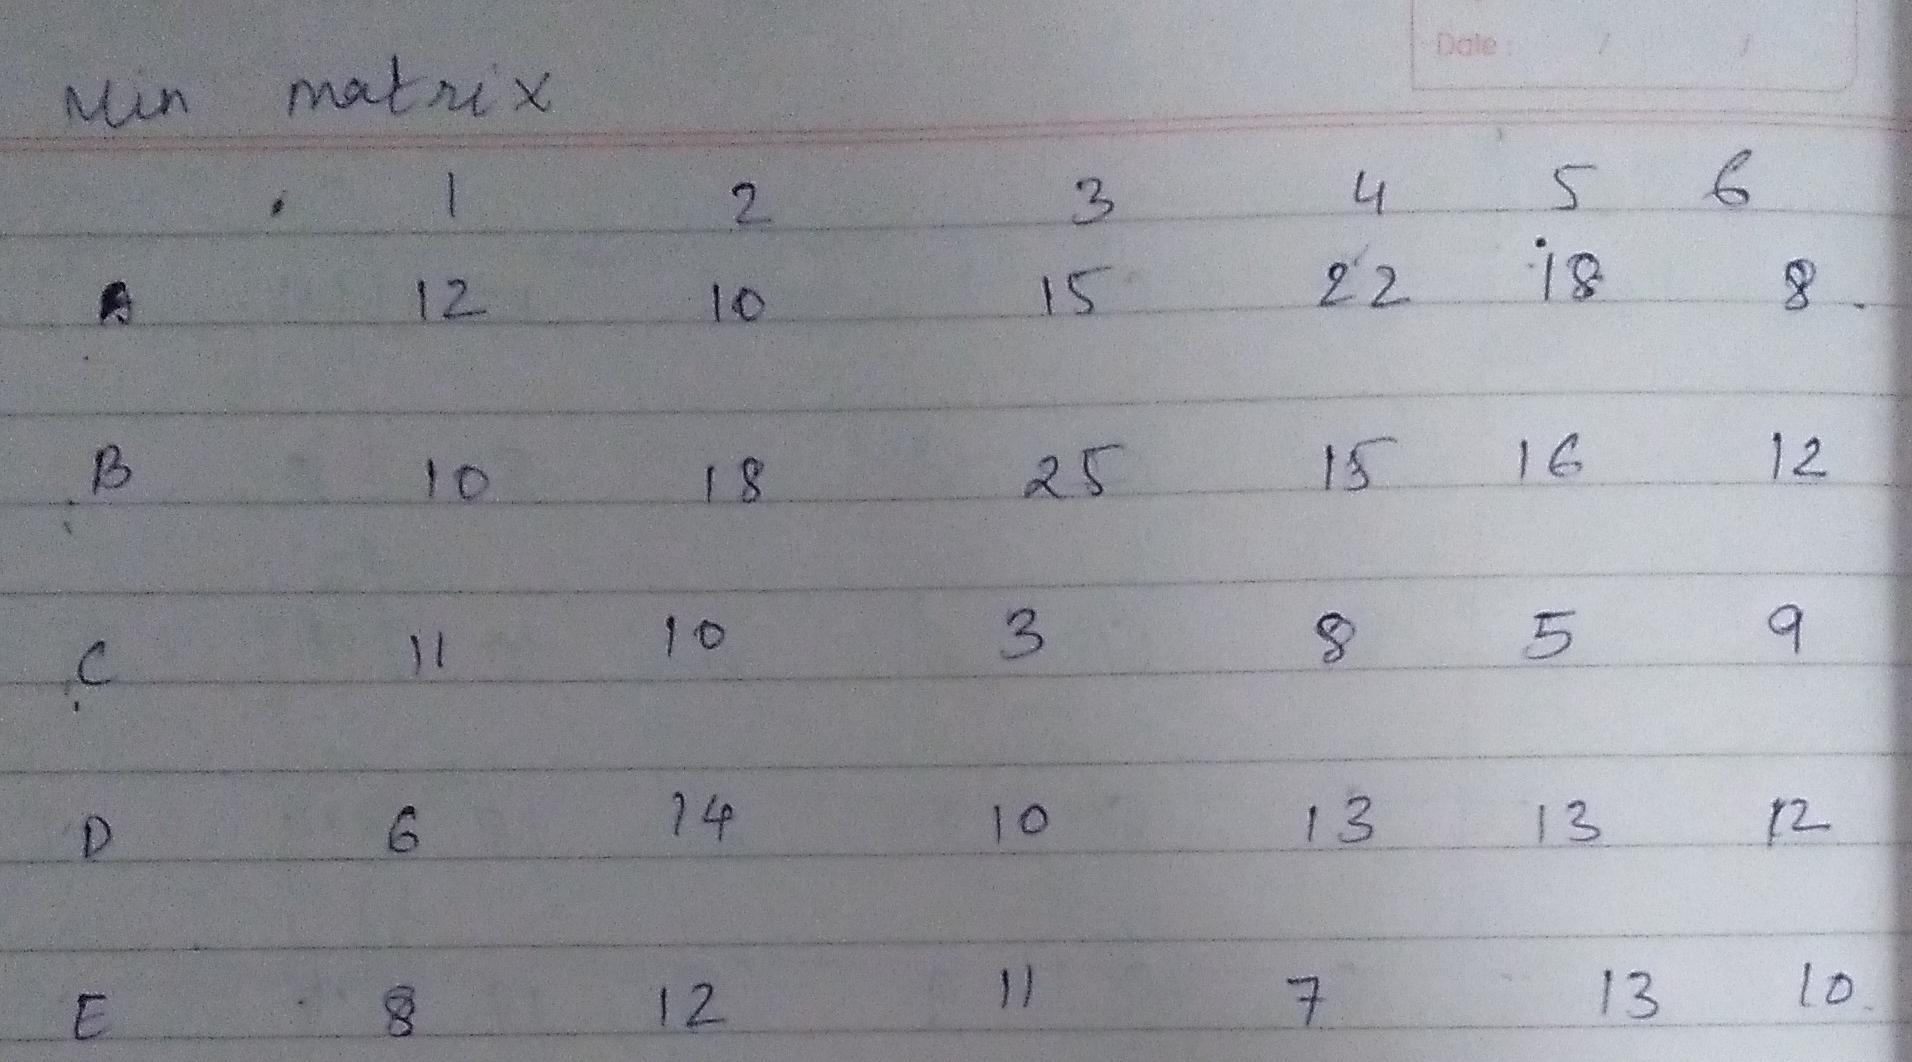 Date : / /
Min matrix
1 2 3 4 5 6
A 12 10 15 22 18 8
B 10 18 25 15 16 12
C 11 10 3 8 5 9
D 6 14 10 13 13 12
E 8 12 11 7 13 10